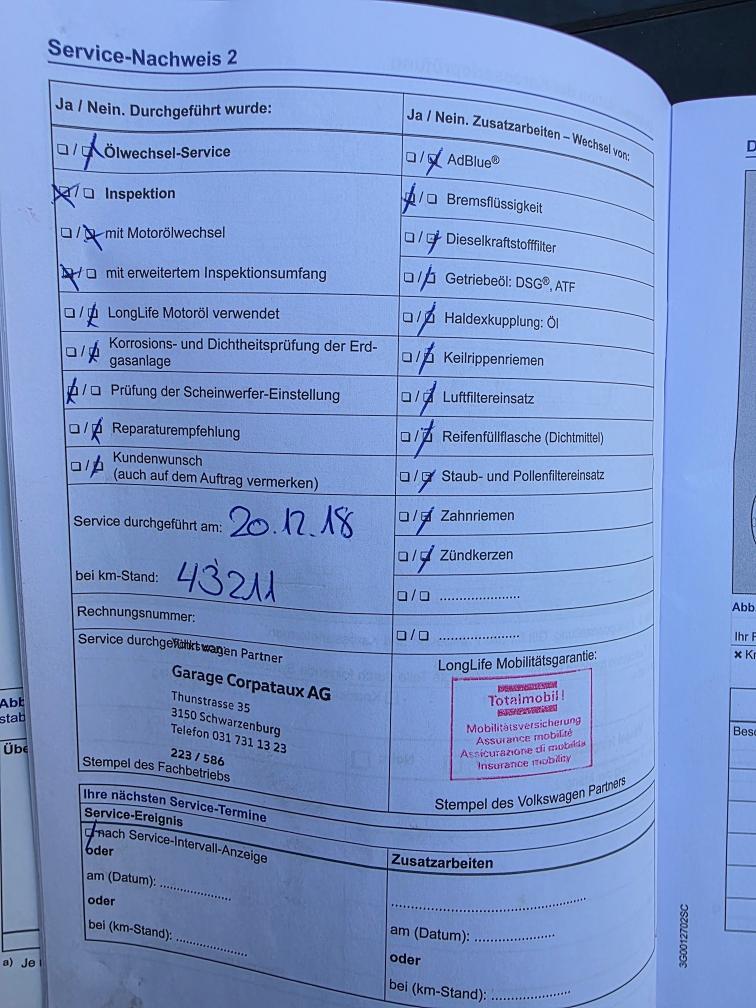 Service-Nachweis 2
Ja / Nein. Durchgeführt wurde:
☐ / ☒ Ölwechsel-Service
☒ / ☐ Inspektion
☐ / ☒ mit Motorölwechsel
☒ / ☐ mit erweitertem Inspektionsumfang
☐ / ☒ LongLife Motoröl verwendet
☐ / ☒ Korrosions- und Dichtheitsprüfung der Erd-
gasanlage
☒ / ☐ Prüfung der Scheinwerfer-Einstellung
☐ / ☒ Reparaturempfehlung
☐ / ☒ Kundenwunsch
(auch auf dem Auftrag vermerken)
Service durchgeführt am: 20.12.18
bei km-Stand: 43211
Rechnungsnummer:
Service durchgeführt von:
Volkswagen Partner
Garage Corpataux AG
Thunstrasse 35
3150 Schwarzenburg
Telefon 031 731 13 23
223 / 586
Stempel des Fachbetriebs
Ja / Nein. Zusatzarbeiten – Wechsel von:
☐ / ☒ AdBlue®
☒ / ☐ Bremsflüssigkeit
☐ / ☒ Dieselkraftstofffilter
☐ / ☒ Getriebeöl: DSG®, ATF
☐ / ☒ Haldexkupplung: Öl
☐ / ☒ Keilrippenriemen
☐ / ☒ Luftfiltereinsatz
☐ / ☒ Reifenfüllflasche (Dichtmittel)
☐ / ☒ Staub- und Pollenfiltereinsatz
☐ / ☒ Zahnriemen
☐ / ☒ Zündkerzen
☐ / ☐ ....................
☐ / ☐ ....................
LongLife Mobilitätsgarantie:
Totalmobil!
Mobilitätsversicherung
Assurance mobilité
Assicurazione di mobilità
Insurance mobility
Stempel des Volkswagen Partners
Ihre nächsten Service-Termine
Service-Ereignis
☒ nach Service-Intervall-Anzeige
oder
am (Datum): ..................
oder
bei (km-Stand): ..................
Zusatzarbeiten
..................................................
am (Datum): ....................
oder
bei (km-Stand): ....................
3G0012702SC
Abb
stab
Übe
a) Je
D
Abb.
Ihr F
✖ Kr
Besc